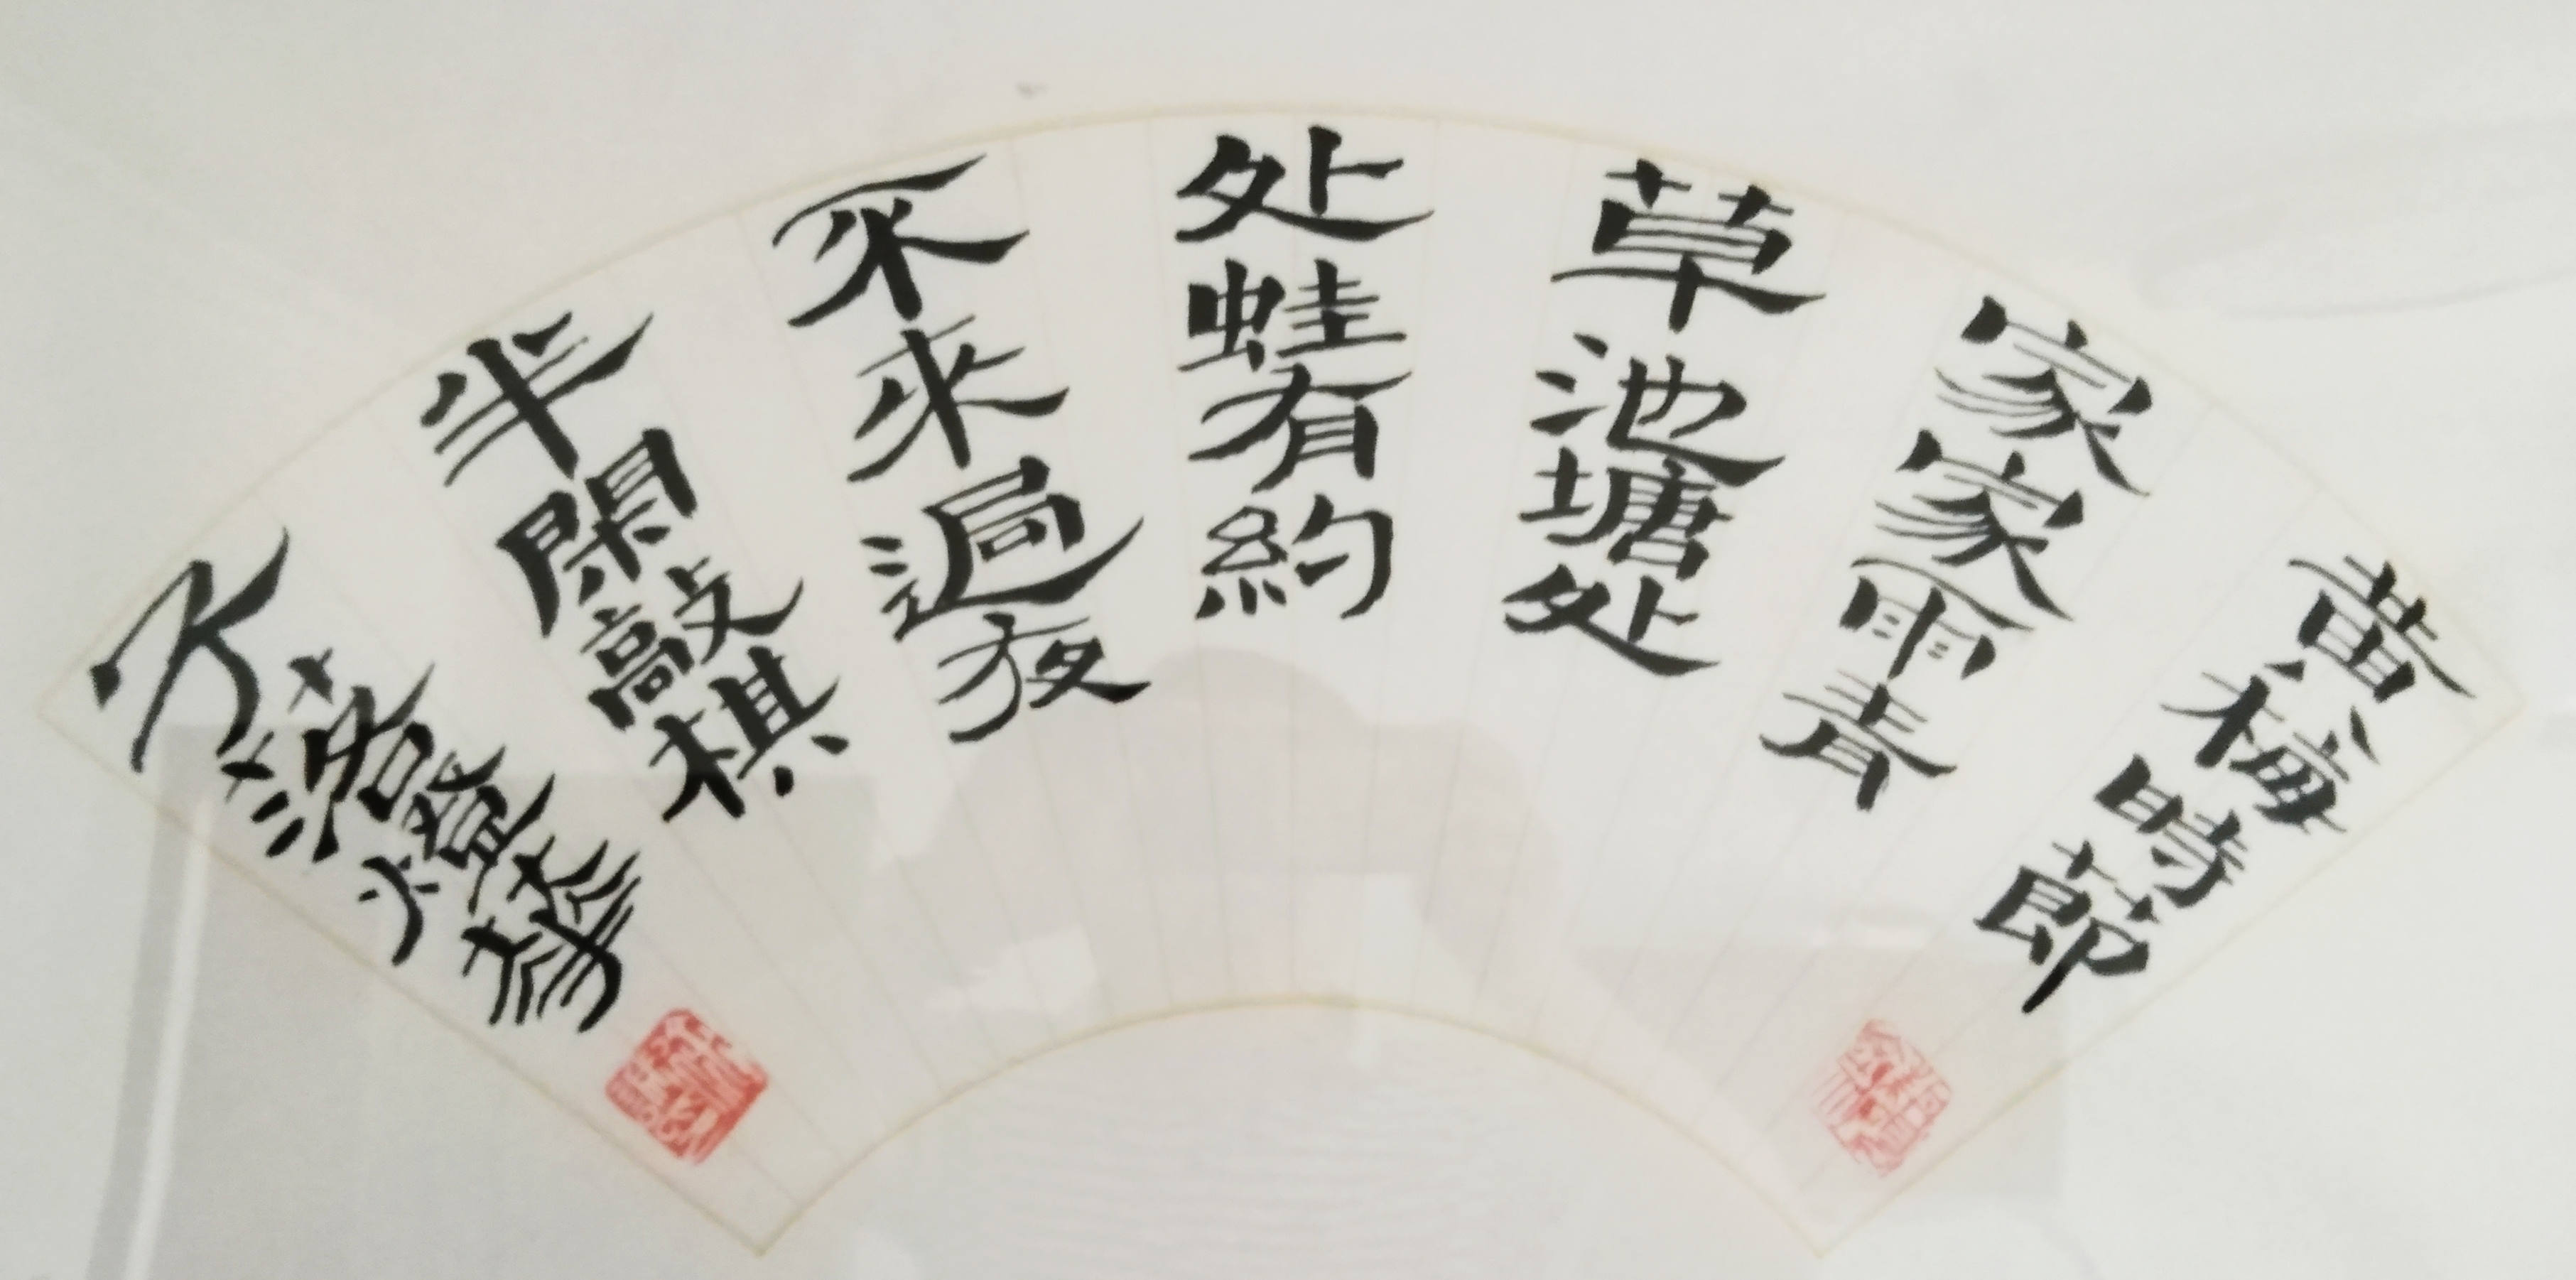 黄梅時節
家家雨青
草池塘处
处蛙有約
不来過夜
半閑敲棋
子落燈華